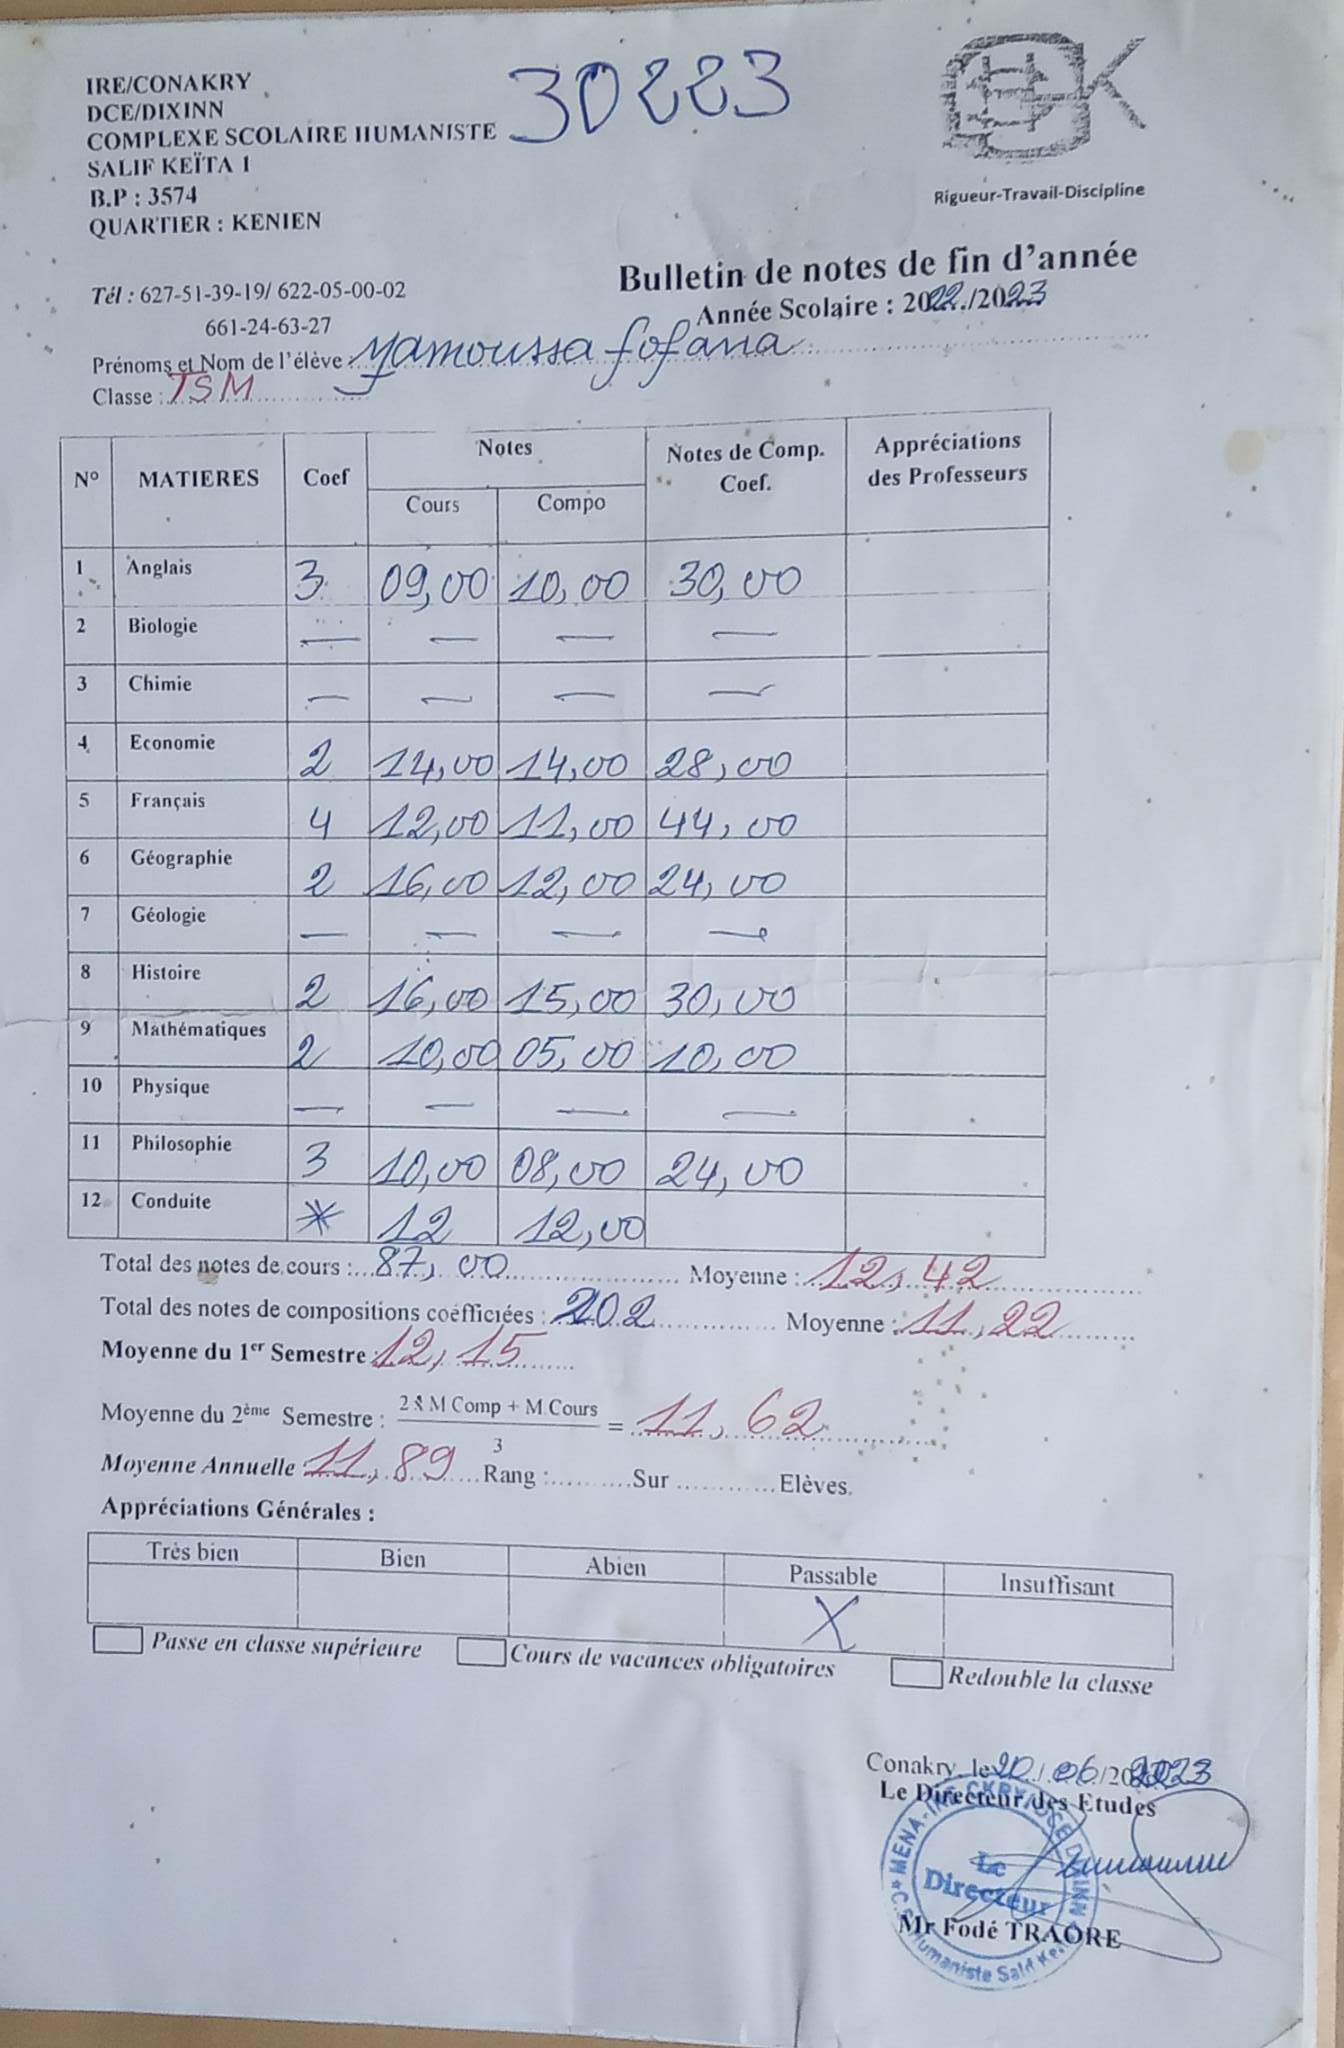 IRE/CONAKRY
DCE/DIXINN
COMPLEXE SCOLAIRE HUMANISTE
SALIF KEÏTA 1
B.P : 3574
QUARTIER : KENIEN
30223
Rigueur-Travail-Discipline
Tél : 627-51-39-19/ 622-05-00-02
661-24-63-27
Bulletin de notes de fin d'année
Année Scolaire : 2022./2023
Prénoms et Nom de l'élève : Yamoussa fofana
Classe : TSM
N° MATIERES Coef Notes Notes de Comp. Coef. Appréciations des Professeurs
Cours Compo
1 Anglais 3 09,00 10,00 30,00
2 Biologie — — — —
3 Chimie — — — —
4 Economie 2 14,00 14,00 28,00
5 Français 4 12,00 11,00 44,00
6 Géographie 2 16,00 12,00 24,00
7 Géologie — — — —
8 Histoire 2 16,00 15,00 30,00
9 Mathématiques 2 10,00 05,00 10,00
10 Physique — — — —
11 Philosophie 3 10,00 08,00 24,00
12 Conduite * 12 12,00
Total des notes de cours : 87,00 Moyenne : 12,42
Total des notes de compositions coefficiées : 202 Moyenne : 11,22
Moyenne du 1er Semestre : 12,15
Moyenne du 2ème Semestre : 2 x M Comp + M Cours / 3 = 11,62
Moyenne Annuelle 11,89 Rang :.........Sur ............Elèves.
Appréciations Générales :
Très bien Bien Abien Passable Insuffisant
X
Passe en classe supérieure Cours de vacances obligatoires Redouble la classe
Conakry, le 20/06/2023
Le Directeur des Etudes
Le
Directeur
Mr Fodé TRAORE